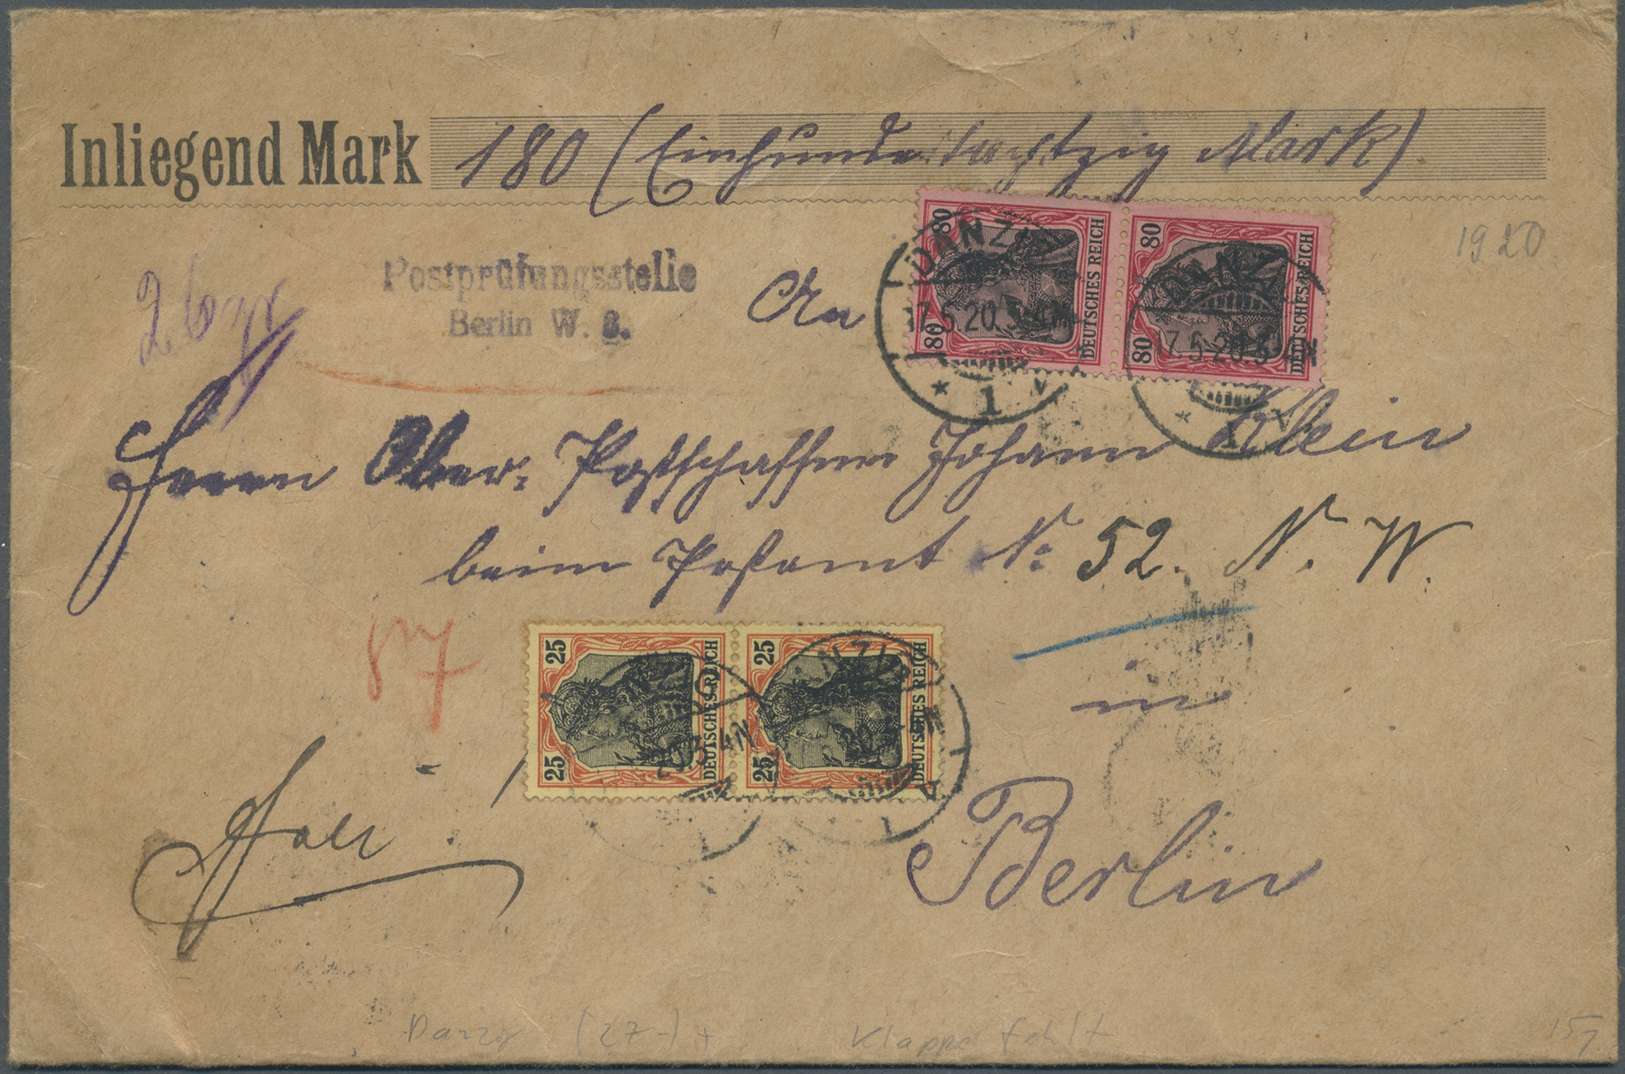 Inliegend Mark 180 (Einhundertachtzig Mark).
1920
26 gr
Postprüfungsstelle
Berlin W. 8.
An
80 80 DEUTSCHES REICH
80 80 DEUTSCHES REICH
DANZIG
17.5.20.3-4N
* 1
DANZIG
17.5.20.3-4N
* 1
Herrn Ober-Postschaffner Johann Klein
beim Postamt No 52. N. W.
25 25 DEUTSCHES REICH
25 25 DEUTSCHES REICH
in
Frei!
Berlin
Danzig (27-) +
Klappe fehlt